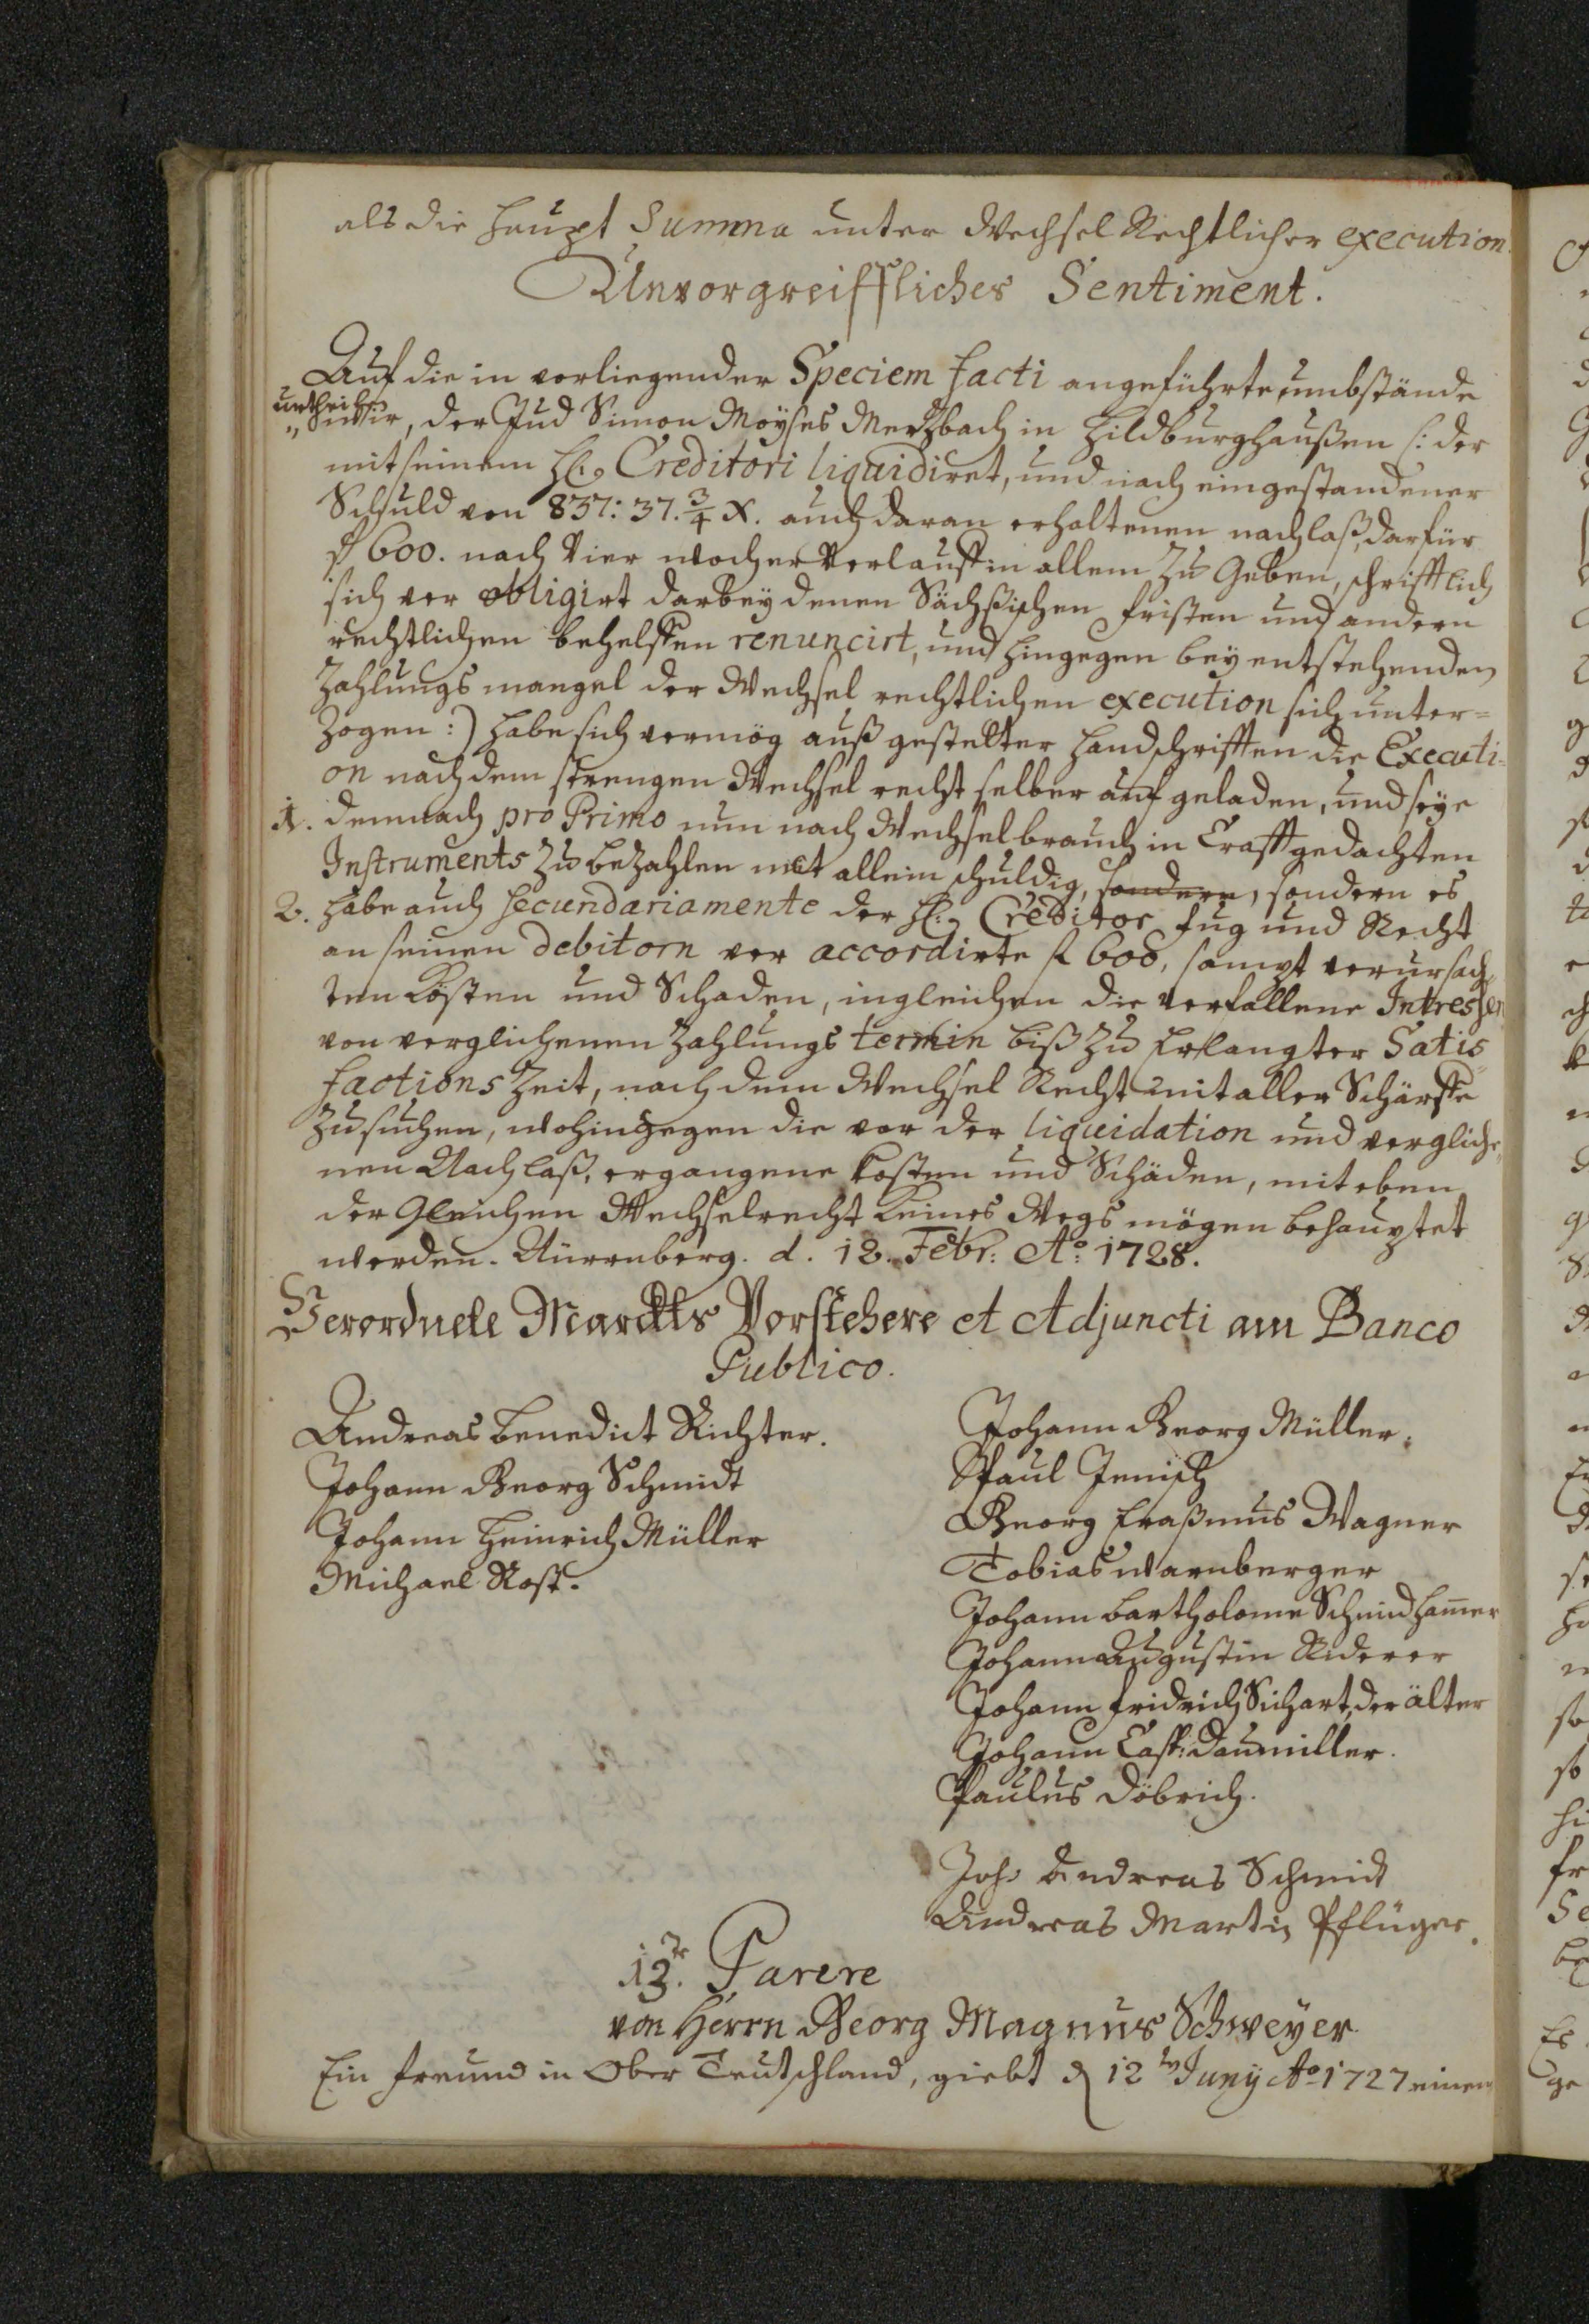 als die Haupt Summa unter Wechsel Rechtlicher execution.
Unvorgreiffliches Sentiment.
Auf die in vorliegender Speciem facti angeführte umbstände
urtheilen
wir, der Jud Simon Moyses Merzbach in Hildburghaußen /: der
mit seinem H: Creditori liquidiret, und nach eingestandener
Schuld von 837: 37. 3/4 X. auch daran erhaltenen nachlaß, darfür
f 600. nach Vier wochen Verlauff in allem zu Geben, schrifftlich
sich ver obligirt darbey denen Sächßischen fristen und andern
rechtlichen behelffen renuncirt, und hingegen bey entstehenden
Zahlungs mangel der Wechsel rechtlichen execution sich unter=
zogen :) habe sich vermög auß gestelter Handschrifften die Executi=
on nach dem strengen Wechsel recht selber auf geladen, und seye
1. demnach pro Primo nun nach Wechselbrauch in Crafft gedachten
Instruments zu bezahlen nit allein schuldig, sondern, sondern es
2. habe auch secundariamente der H: Creditor fug und Recht
an seinen debitorn ver accordirte f 600, sampt verursach=
ten Kösten und Schaden, ingleichen die verfallene Intressen
von verglichenen Zahlungs termin biß zu Erlangter Satis=
factions Zeit, nach dem Wechsel Recht mit aller Schärffe
zu suchen, wohingegen die vor der liquidation und vergliche=
nen Nachlaß, ergangene Kosten und Schäden, mit eben
der Gleichen Wechselrecht Keines Wegs mögen behauptet
werden. Nürrnberg. d. 12. Febr: Ao: 1728.
Verordnete Marckts Vorstehere et Adjuncti am Banco
Publico.
Andreas Benedict Richter.
Johann Georg Schmidt
Johann Heinrich Müller
Michael Rost.
Johann Georg Müller.
Paul Jenisch
Georg Eraßmus Wagner
Tobias warnberger
Johann Bartholome Schmidhamer
Johann Augustin Riderer
Johann fridrich Sichart, der älter
Johann Casp: Daumiller.
Paulus Döbrich.
Joh: Andreas Schmidt
Andreas Martin Pflüger.
13te. Parere
von Herrn Georg Magnus Schweyer.
Ein freund in Ober Teutschland, giebt d 12ten Juny Ao 1727 einen